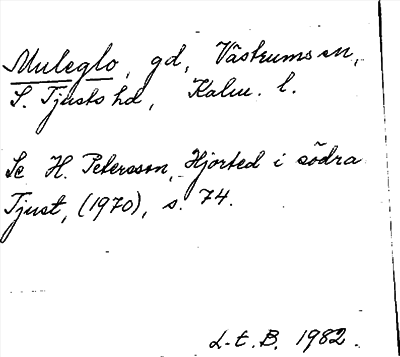 Muleglo, gd, Västrums sn,
S. Tjusts hd, Kalm. l.
Se H. Petersson, Hjorted i södra
Tjust, (1970), s. 74.
L-t. B. 1982.